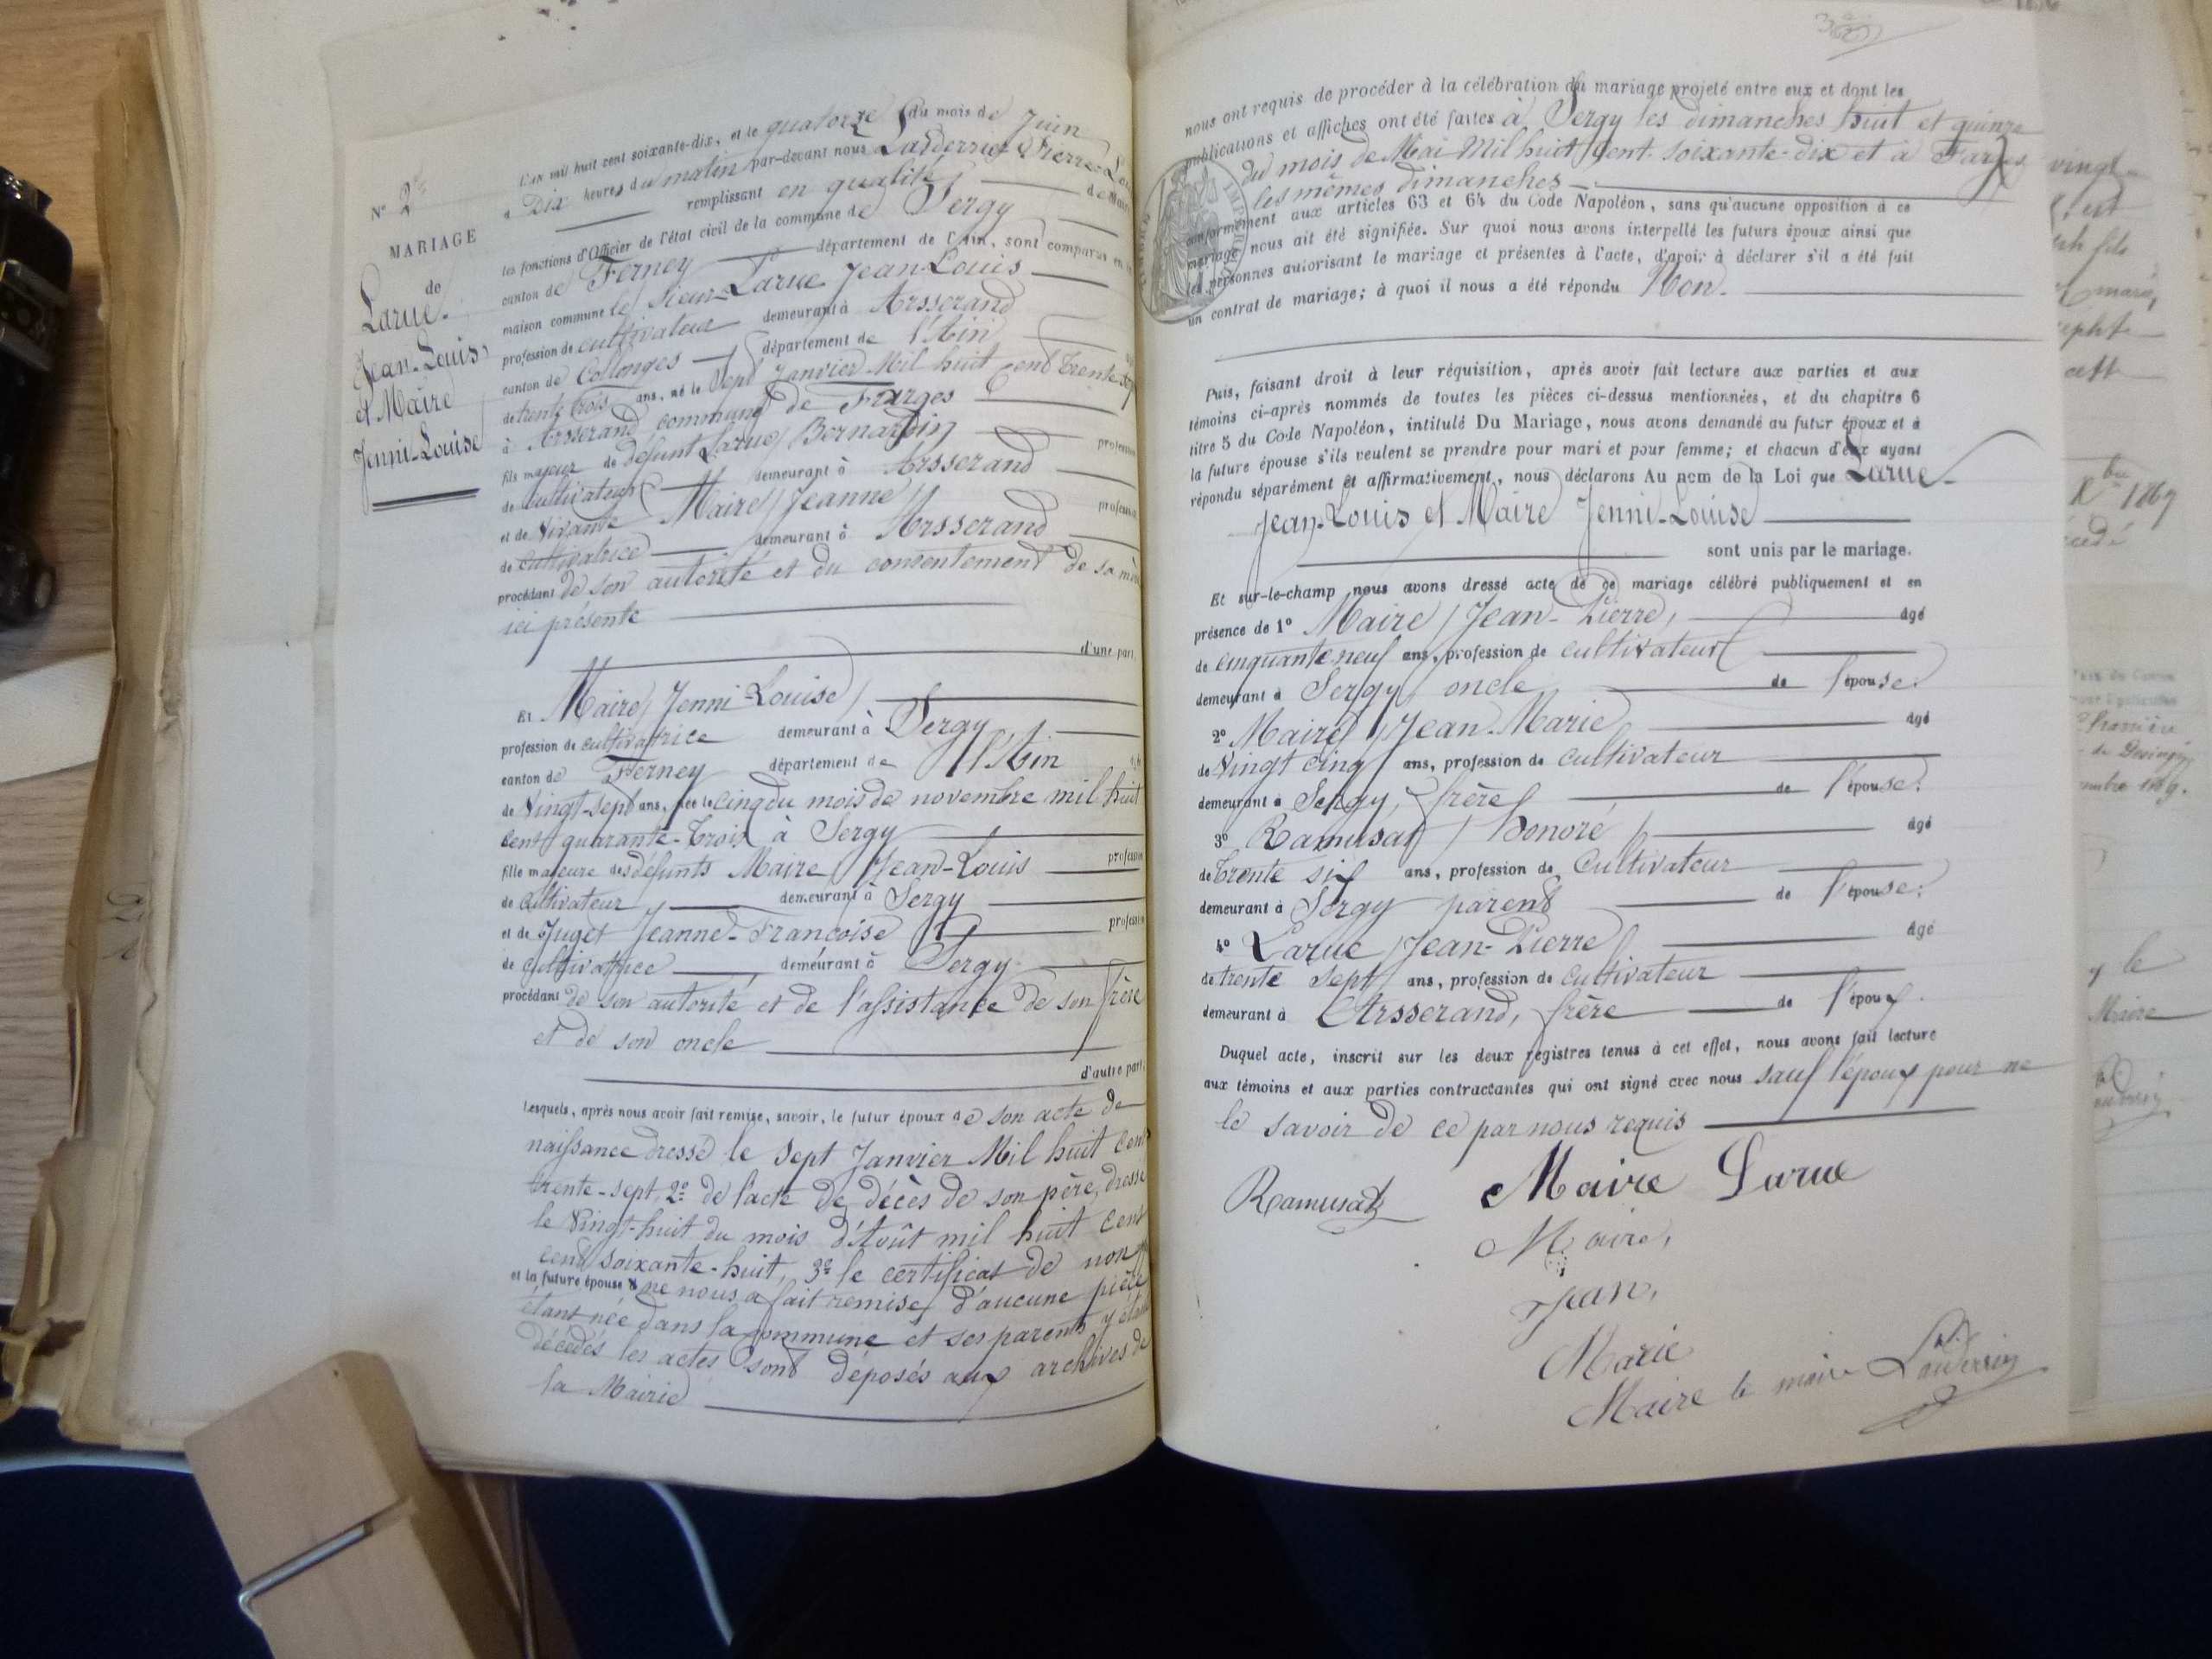 N° 2
MARIAGE
de
Larue
Jean-Louis
et Maire
Jenni-Louise
L'an mil huit cent soixante-dix, et le quatorze du mois de Juin
à Dix heures du matin par-devant nous Pierre
remplissant en qualité de Maire
les fonctions d'Officier de l'état civil de la commune de Sergy
canton de Ferney département de l'Ain, sont comparus en la
maison commune le sieur Larue Jean-Louis
profession de cultivateur demeurant à Asserand
canton de Collonges département de l'Ain
de trente trois ans, né le Sept Janvier Mil huit Cent trente
à Asserand commune de Farges
fils majeur de défunt Larue Bernardin profession
de cultivateur demeurant à Arsserand
et de Vivante Maire Jeanne profession
de cultivatrice demeurant à Arsserand
procédant de son autorité et du consentement de sa mère
ici présente
d'une part,
Et Maire Jenni-Louise
profession de cultivatrice demeurant à Sergy
canton de Ferney département de l'Ain
de Vingt-sept ans, née le cinq du mois de novembre mil huit
cent quarante-trois à Sergy
fille majeure des défunts Maire Jean-Louis profession
de Cultivateur demeurant à Sergy
et de Juget Jeanne-Françoise profession
de cultivatrice demeurant à Sergy
procédant de son autorité et de l'assistance de son frère
et de son oncle
d'autre part,
Lesquels, après nous avoir fait remise, savoir, le futur époux de son acte de
naissance dressé le sept Janvier Mil huit cent
trente-sept, 2° de l'acte de décès de son père, dressé
le Vingt-huit du mois d'Août mil huit cent
cent soixante-huit, 3° le certificat de non
et la future épouse ne nous a fait remise d'aucune pièce
étant née dans la commune et ses parents y étant
décédés les actes sont déposés aux archives de
la Mairie
nous ont requis de procéder à la célébration du mariage projeté entre eux et dont les
publications et affiches ont été faites à Sergy les dimanches huit et quinze
du mois de Mai Mil huit Cent soixante-dix et à Farges
les mêmes dimanches
conformément aux articles 63 et 64 du Code Napoléon, sans qu'aucune opposition à ce
mariage nous ait été signifiée. Sur quoi nous avons interpellé les futurs époux ainsi que
les personnes autorisant le mariage et présentes à l'acte, d'avoir à déclarer s'il a été fait
un contrat de mariage; à quoi il nous a été répondu Non.
Puis, faisant droit à leur réquisition, après avoir fait lecture aux parties et aux
témoins ci-après nommés de toutes les pièces ci-dessus mentionnées, et du chapitre 6
titre 5 du Code Napoléon, intitulé Du Mariage, nous avons demandé au futur époux et à
la future épouse s'ils veulent se prendre pour mari et pour femme; et chacun d'eux ayant
répondu séparément et affirmativement, nous déclarons Au nom de la Loi que Larue
Jean-Louis et Maire Jenni-Louise
sont unis par le mariage.
Et sur-le-champ nous avons dressé acte de ce mariage célébré publiquement et en
présence de 1° Maire Jean-Pierre, âgé
de cinquante neuf ans, profession de cultivateur
demeurant à Sergy oncle de l'épouse.
2° Maire Jean-Marie âgé
de Vingt cinq ans, profession de cultivateur
demeurant à Sergy, frère de l'épouse.
3° Ramusat Honoré âgé
de trente six ans, profession de Cultivateur
demeurant à Sergy parent de l'épouse.
4° Larue Jean-Pierre âgé
de trente sept ans, profession de cultivateur
demeurant à Arsserand, frère de l'époux.
Duquel acte, inscrit sur les deux registres tenus à cet effet, nous avons fait lecture
aux témoins et aux parties contractantes qui ont signé avec nous sauf l'époux pour ne
le savoir de ce par nous requis
Ramusat Maire Larue
Maire,
Jean,
Marie
Maire le maire